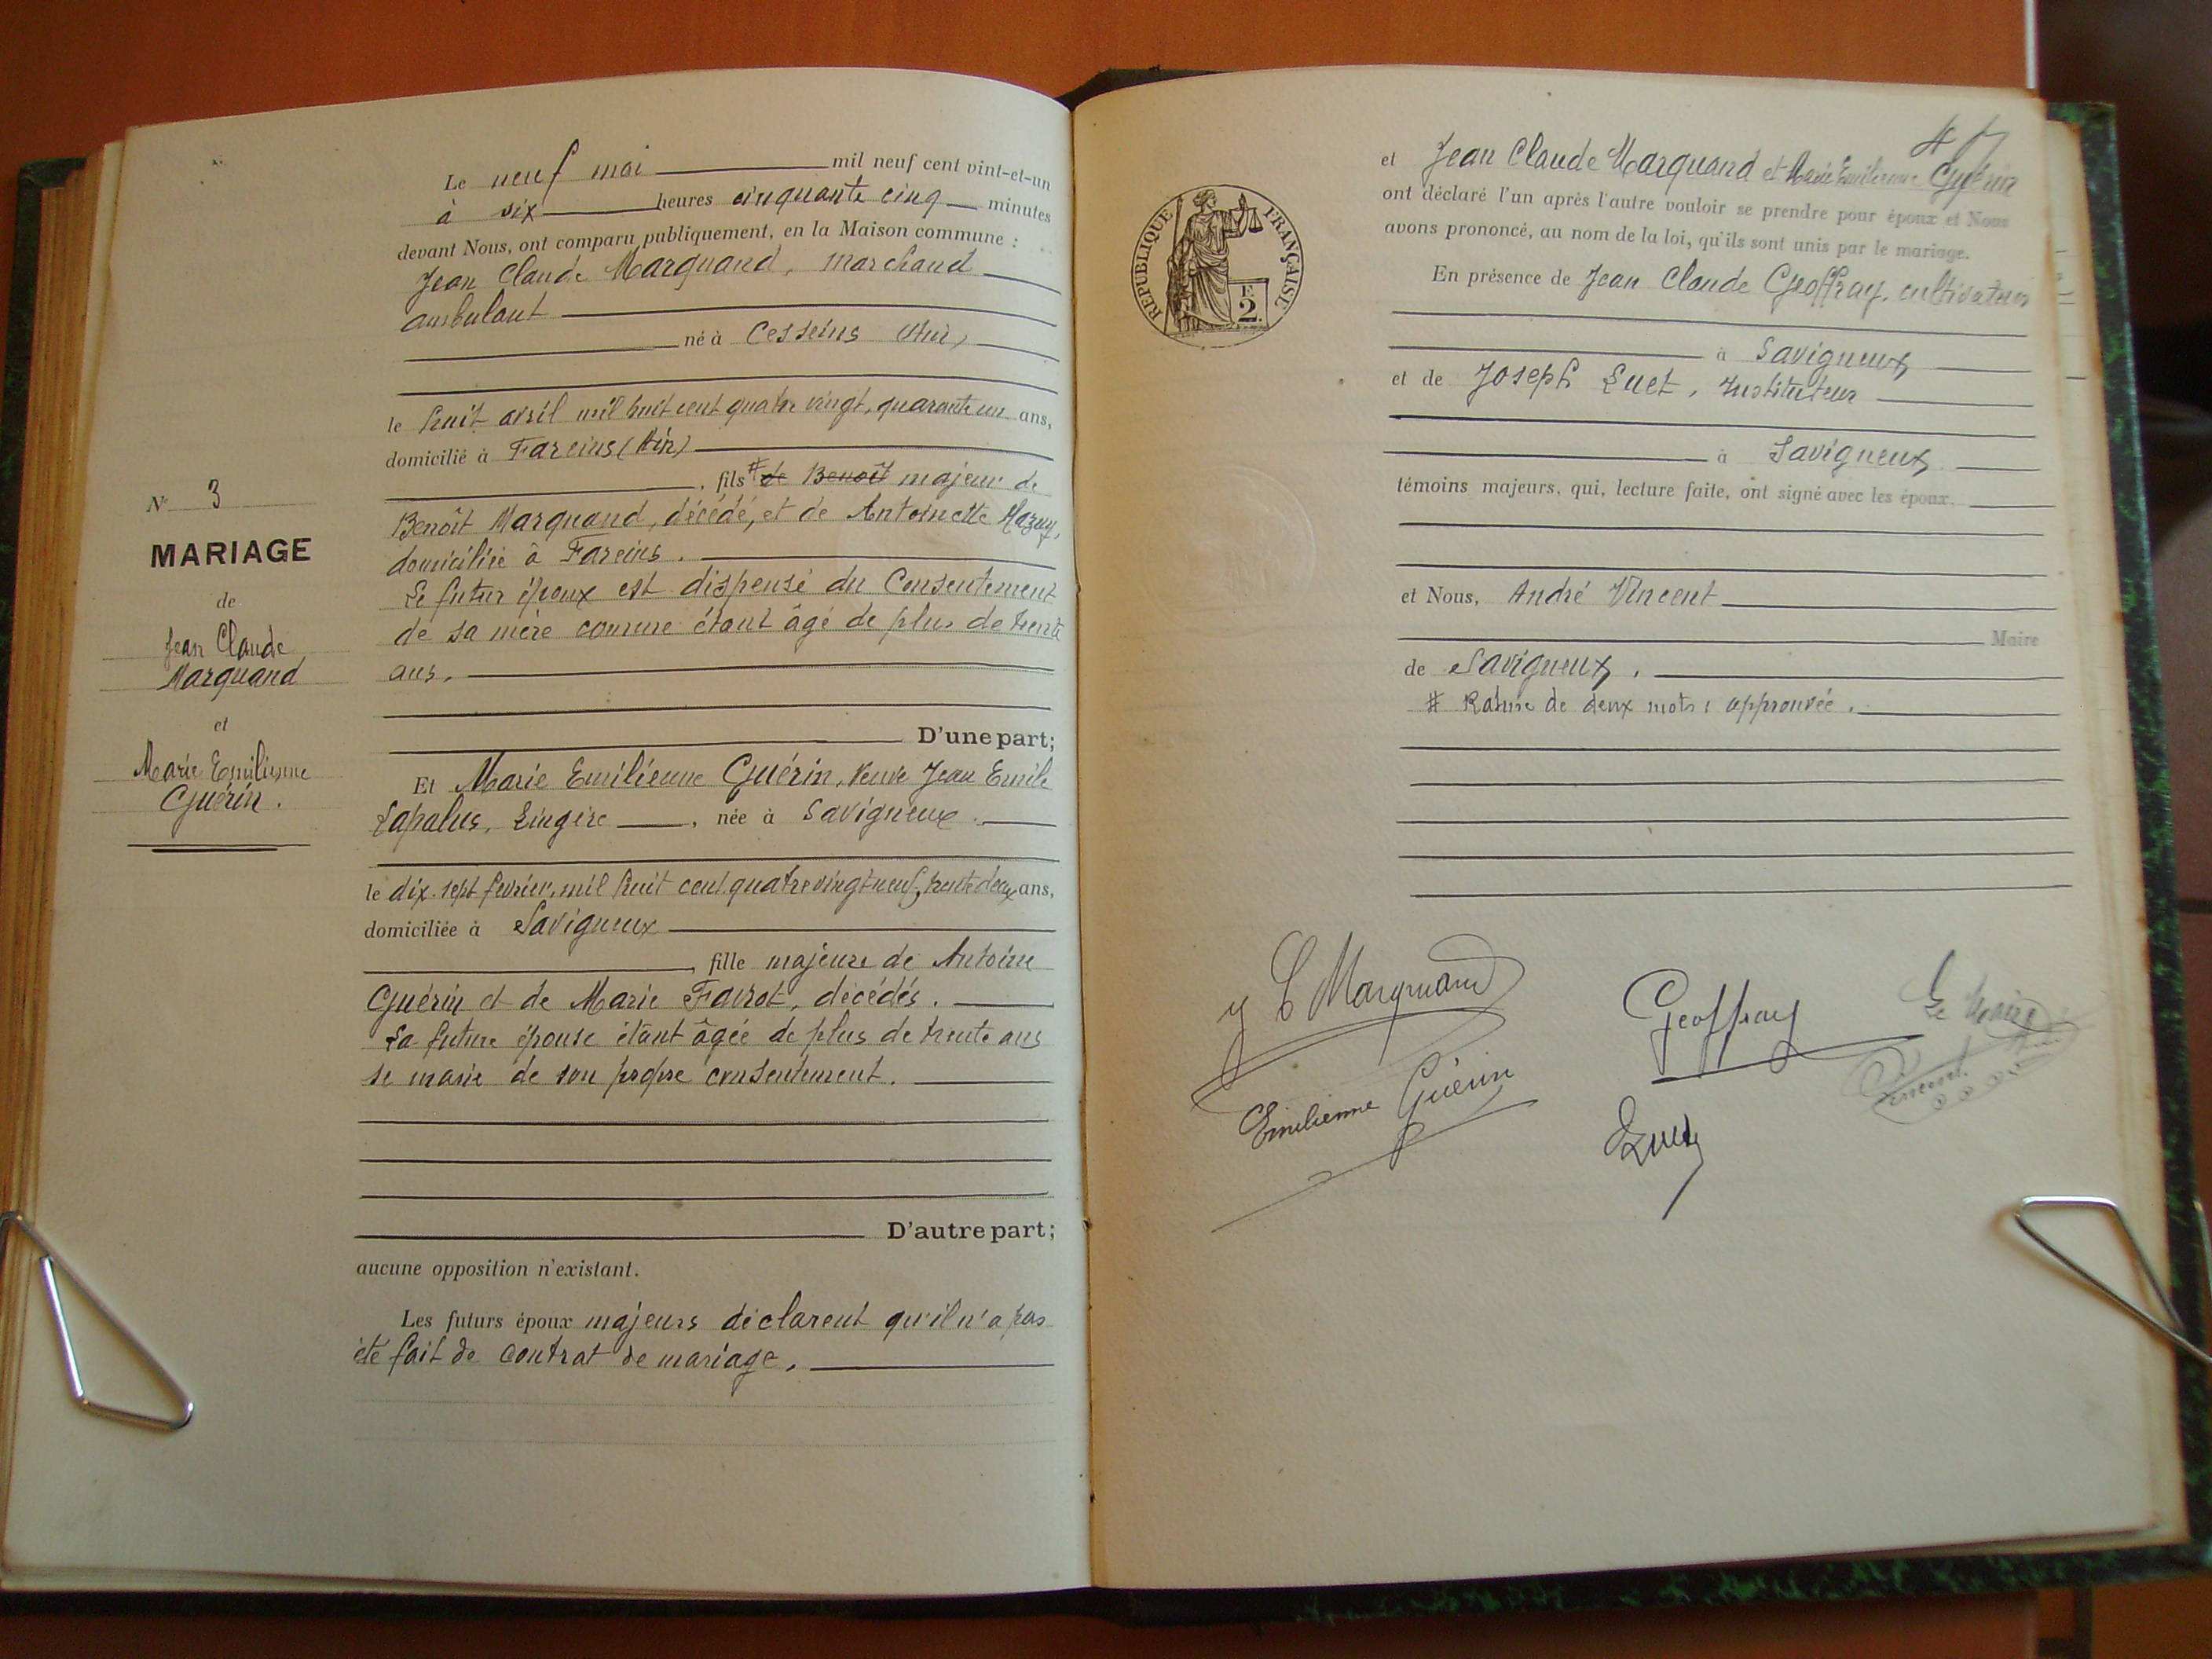 Le neuf mai mil neuf cent vint-et-un
à six heures cinquante cinq minutes
devant Nous, ont comparu publiquement, en la Maison commune :
Jean Claude Marquand, marchand
ambulant
né à Cesseins (Ain)
le huit avril mil huit cent quatre vingt, quarante un ans,
domicilié à Fareins (Ain)
, fils # de Benoît majeur de
Benoît Marquand, décédé, et de Antoinette Mazuy,
domiciliée à Fareins.
Le futur époux est dispensé du Consentement
de sa mère comme étant âgé de plus de trente
ans.
D'une part;
Et Marie Emilienne Guérin, veuve Jean Emile
Lapalus, Lingère, née à Savigneux.
le dix-sept février, mil huit cent quatre vingt neuf, trente deux ans,
domiciliée à Savigneux
, fille majeure de Antoine
Guérin et de Marie Favrot, décédés.
La future épouse étant âgée de plus de trente ans
se marie de son propre consentement.
D'autre part;
aucune opposition n'existant.
Les futurs époux majeurs déclarent qu'il n'a pas
été fait de contrat de mariage.
N° 3
MARIAGE
de
Jean Claude
Marquand
et
Marie Emilienne
Guérin.
REPUBLIQUE FRANÇAISE
F.
2.
et Jean Claude Marquand et Marie Emilienne Guérin
ont déclaré l'un après l'autre vouloir se prendre pour époux et Nous
avons prononcé, au nom de la loi, qu'ils sont unis par le mariage.
En présence de Jean Claude Geoffray, cultivateur
à Savigneux
et de Joseph Luet, Instituteur
à Savigneux
témoins majeurs, qui, lecture faite, ont signé avec les époux.
et Nous, André Vincent
Maire
de Savigneux.
# Rature de deux mots : approuvée.
J C Marquand
Emilienne Guérin
Geoffray
Luet
Le Maire
Vincent